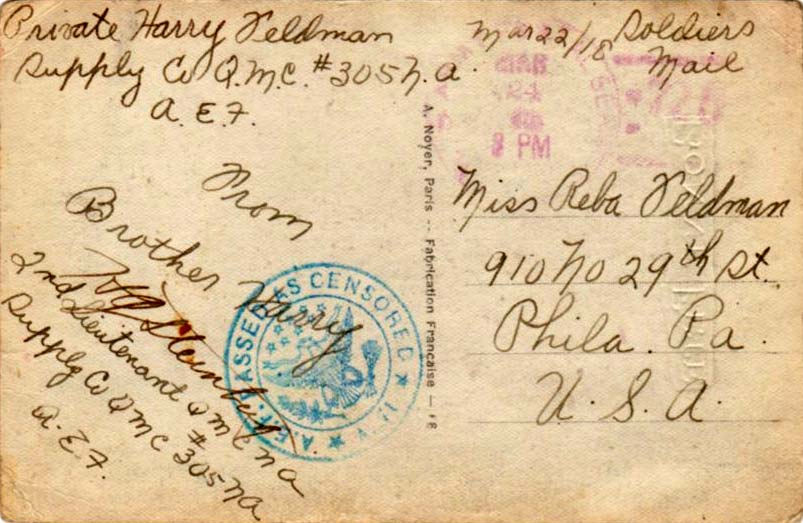 Private Harry Feldman
Supply Co Q.M.C. #305 N.A.
A.E.F.
Mar 22/18
Soldiers
Mail
MAR
24
8 PM
From
Brother Harry
2nd Lieutenant QMC NA
Supply Co QMC #305 NA
A.E.F.
A.E.F. PASSED AS CENSORED
A. Noyer, Paris -- Fabrication Française -- FR
Miss Reba Feldman
910 No 29th St.
Phila. Pa.
U.S.A.